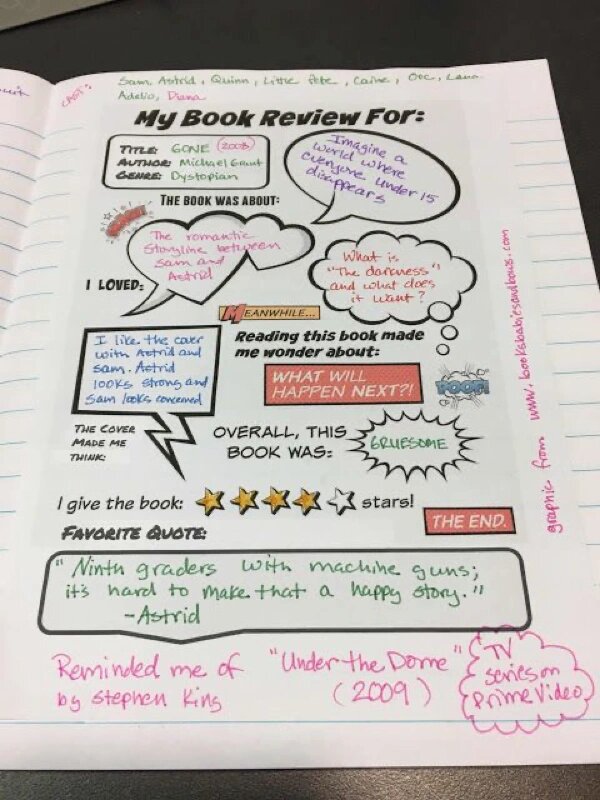 CAST: Sam, Astrid, Quinn, Little Pete, Caine, Orc, Lana
Adelio, Diana
My Book Review For:
TITLE: GONE (2008)
AUTHOR: Michael Grant
GENRE: Dystopian
Imagine a
world where
everyone under 15
disappears
THE BOOK WAS ABOUT:
The romantic
storyline between
Sam and
Astrid
I LOVED:
What is
"The darkness"
and what does
it want?
MEANWHILE...
Reading this book made
me wonder about:
WHAT WILL
HAPPEN NEXT?!
POOF!
I like the cover
with Astrid and
Sam. Astrid
looks strong and
Sam looks concerned
THE COVER
MADE ME
THINK:
OVERALL, THIS
BOOK WAS:
GRUESOME
I give the book: stars!
THE END.
FAVORITE QUOTE:
"Ninth graders with machine guns;
it's hard to make that a happy story."
-Astrid
Reminded me of "Under the Dome"
by Stephen King (2009)
TV
series on
Prime Video
graphic from www.booksbabiesandbows.com